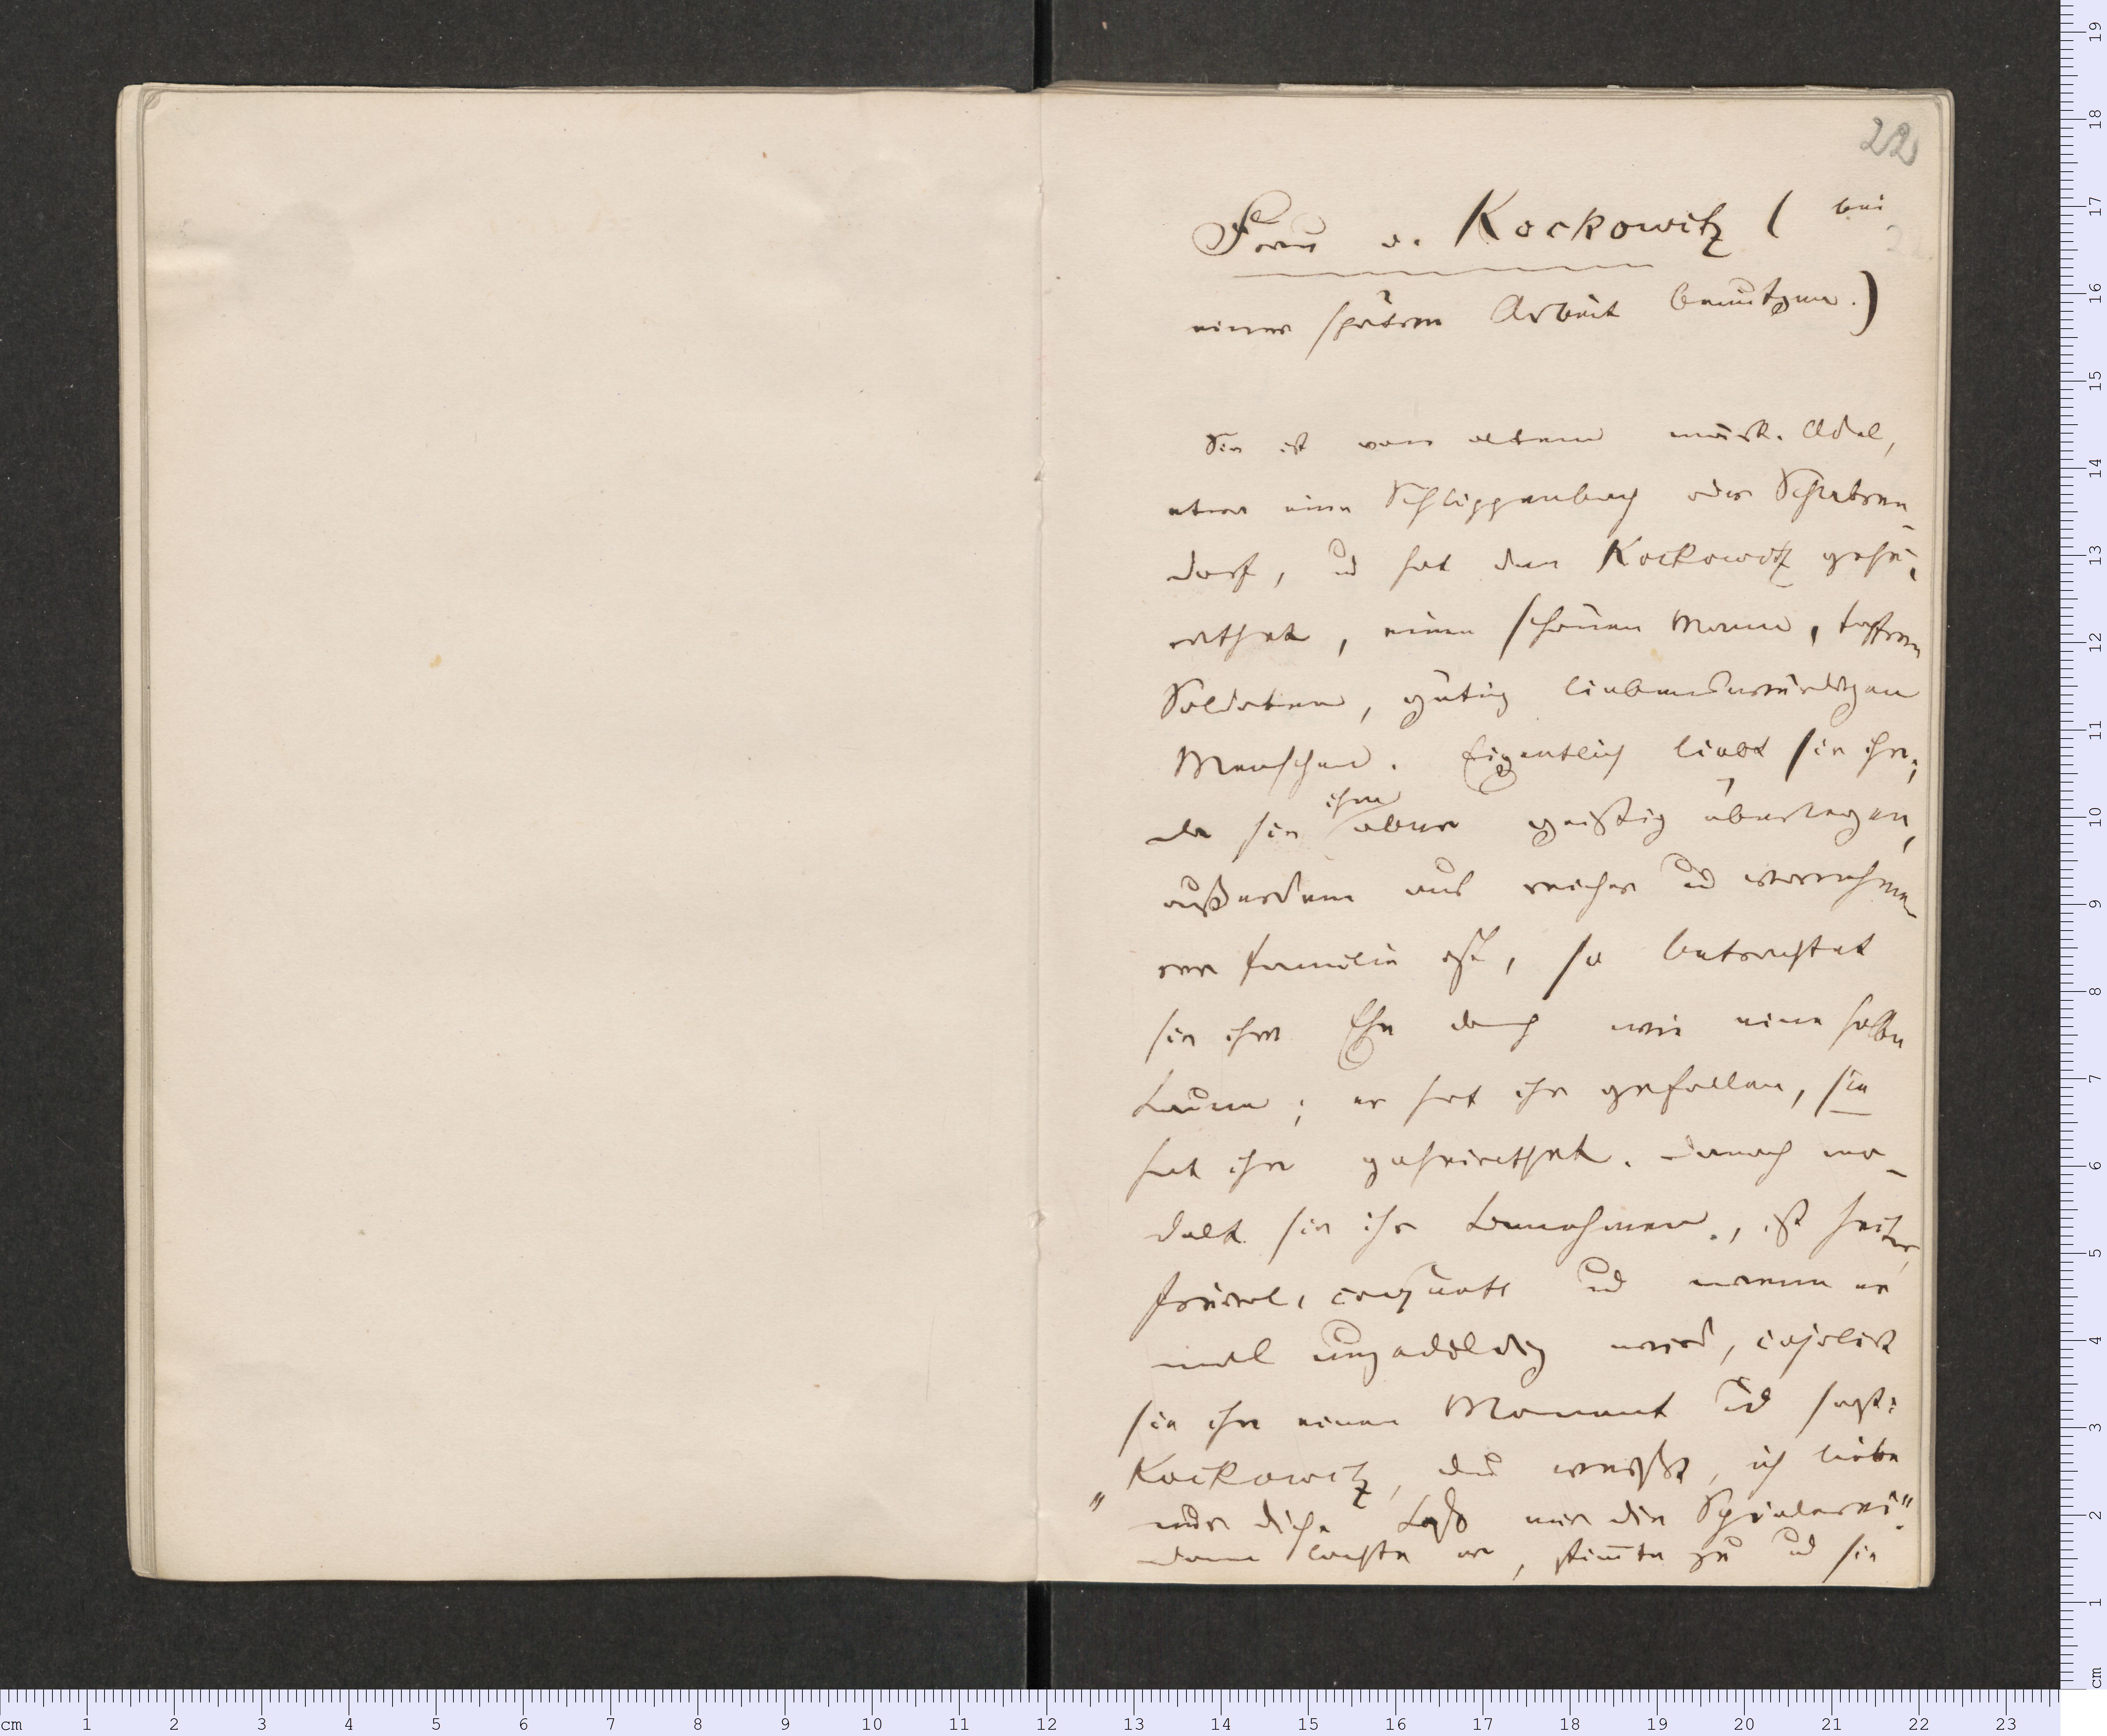 22
Frau v. Kockowitz (bei
einer spätren Arbeit benutzen.)
Sie ist von altem märk. Adel,
etwa eine Schlippenbach oder Schabren-
dorf, und hat den Kockowitz gehei-
rathet, einen schönen Mann, tapfren
Soldaten, gütig liebenswürdigen
Menschen. Eigentlich liebt sie ihn;
da sie ihm aber geistig überlegen,
außerdem aus reicher und vornehme-
rer Familie ist, so betrachtet
sie ihre Ehe doch wie eine halbe
Laune; er hat ihr gefallen, sie
hat ihn geheirathet. Danach mo-
delt sie ihr Benehmen, ist heiter,
frivol, coquett und wenn er
mal ungeduldig wird, cajolirt
sie ihn einen Moment und sagt:
„Kockowitz, du weißt, ich liebe
nur dich. Laß mir die Spielerei".
Dann lachte er, stimte zu und sie